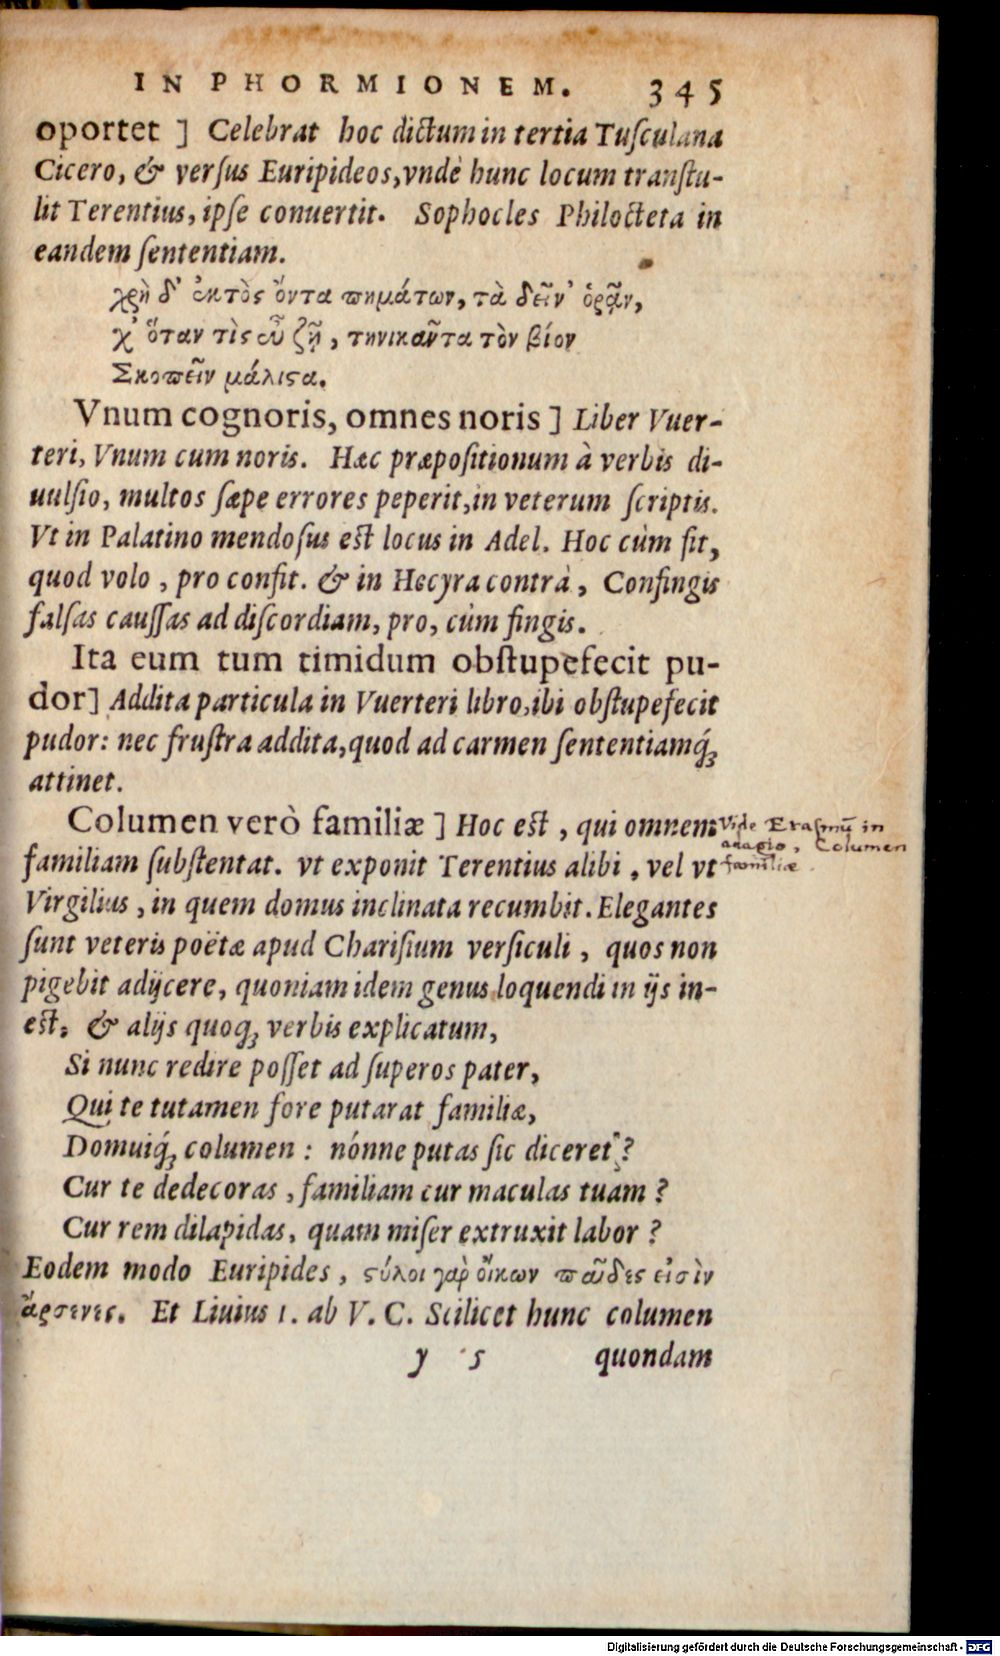 IN PHORMIONEM. 345
oportet ] Celebrat hoc dictum in tertia Tuſculana
Cicero, & verſus Euripideos, vndè hunc locum tranſtu-
lit Terentius, ipſe conuertit. Sophocles Philocteta in
eandem ſententiam.
χρὴ δ' ἐκτὸς ὄντα πημάτων, τὰ δεῖν' ὁρᾷν,
χ' ὅταν τὶς εὖ ζῇ, τηνικαῦτα τὸν βίον
Σκοπεῖν μάλιϛα.
Vnum cognoris, omnes noris ] Liber Vuer-
teri, Vnum cum noris. Hæc præpoſitionum à verbis di-
uulſio, multos ſæpe errores peperit, in veterum ſcriptis.
Vt in Palatino mendoſus eſt locus in Adel. Hoc cùm ſit,
quod volo, pro confit. & in Hecyra contrà, Confingis
falſas cauſſas ad diſcordiam, pro, cùm fingis.
Ita eum tum timidum obſtupefecit pu-
dor] Addita particula in Vuerteri libro, ibi obſtupefecit
pudor: nec fruſtra addita, quod ad carmen ſententiamq́;
attinet.
Columen verò familiæ ] Hoc eſt, qui omnem
familiam ſubſtentat. vt exponit Terentius alibi, vel vt
Virgilius, in quem domus inclinata recumbit. Elegantes
ſunt veteris poëtæ apud Chariſium verſiculi, quos non
pigebit adijcere, quoniam idem genus loquendi in ijs in-
eſt; & alijs quoq; verbis explicatum,
Si nunc redire poſſet ad ſuperos pater,
Qui te tutamen fore putarat familiæ,
Domuiq́; columen: nónne putas ſic diceret?
Cur te dedecoras, familiam cur maculas tuam?
Cur rem dilapidas, quam miſer extruxit labor?
Eodem modo Euripides, ϛύλοι γαρ̀ οἴκων παῖδες εἰσὶν
ἄρσενες. Et Liuius 1. ab V. C. Scilicet hunc columen
y 5 quondam
Vide Erasmū in
adagio, Columen
familiæ.
Digitalisierung gefördert durch die Deutsche Forschungsgemeinschaft - DFG